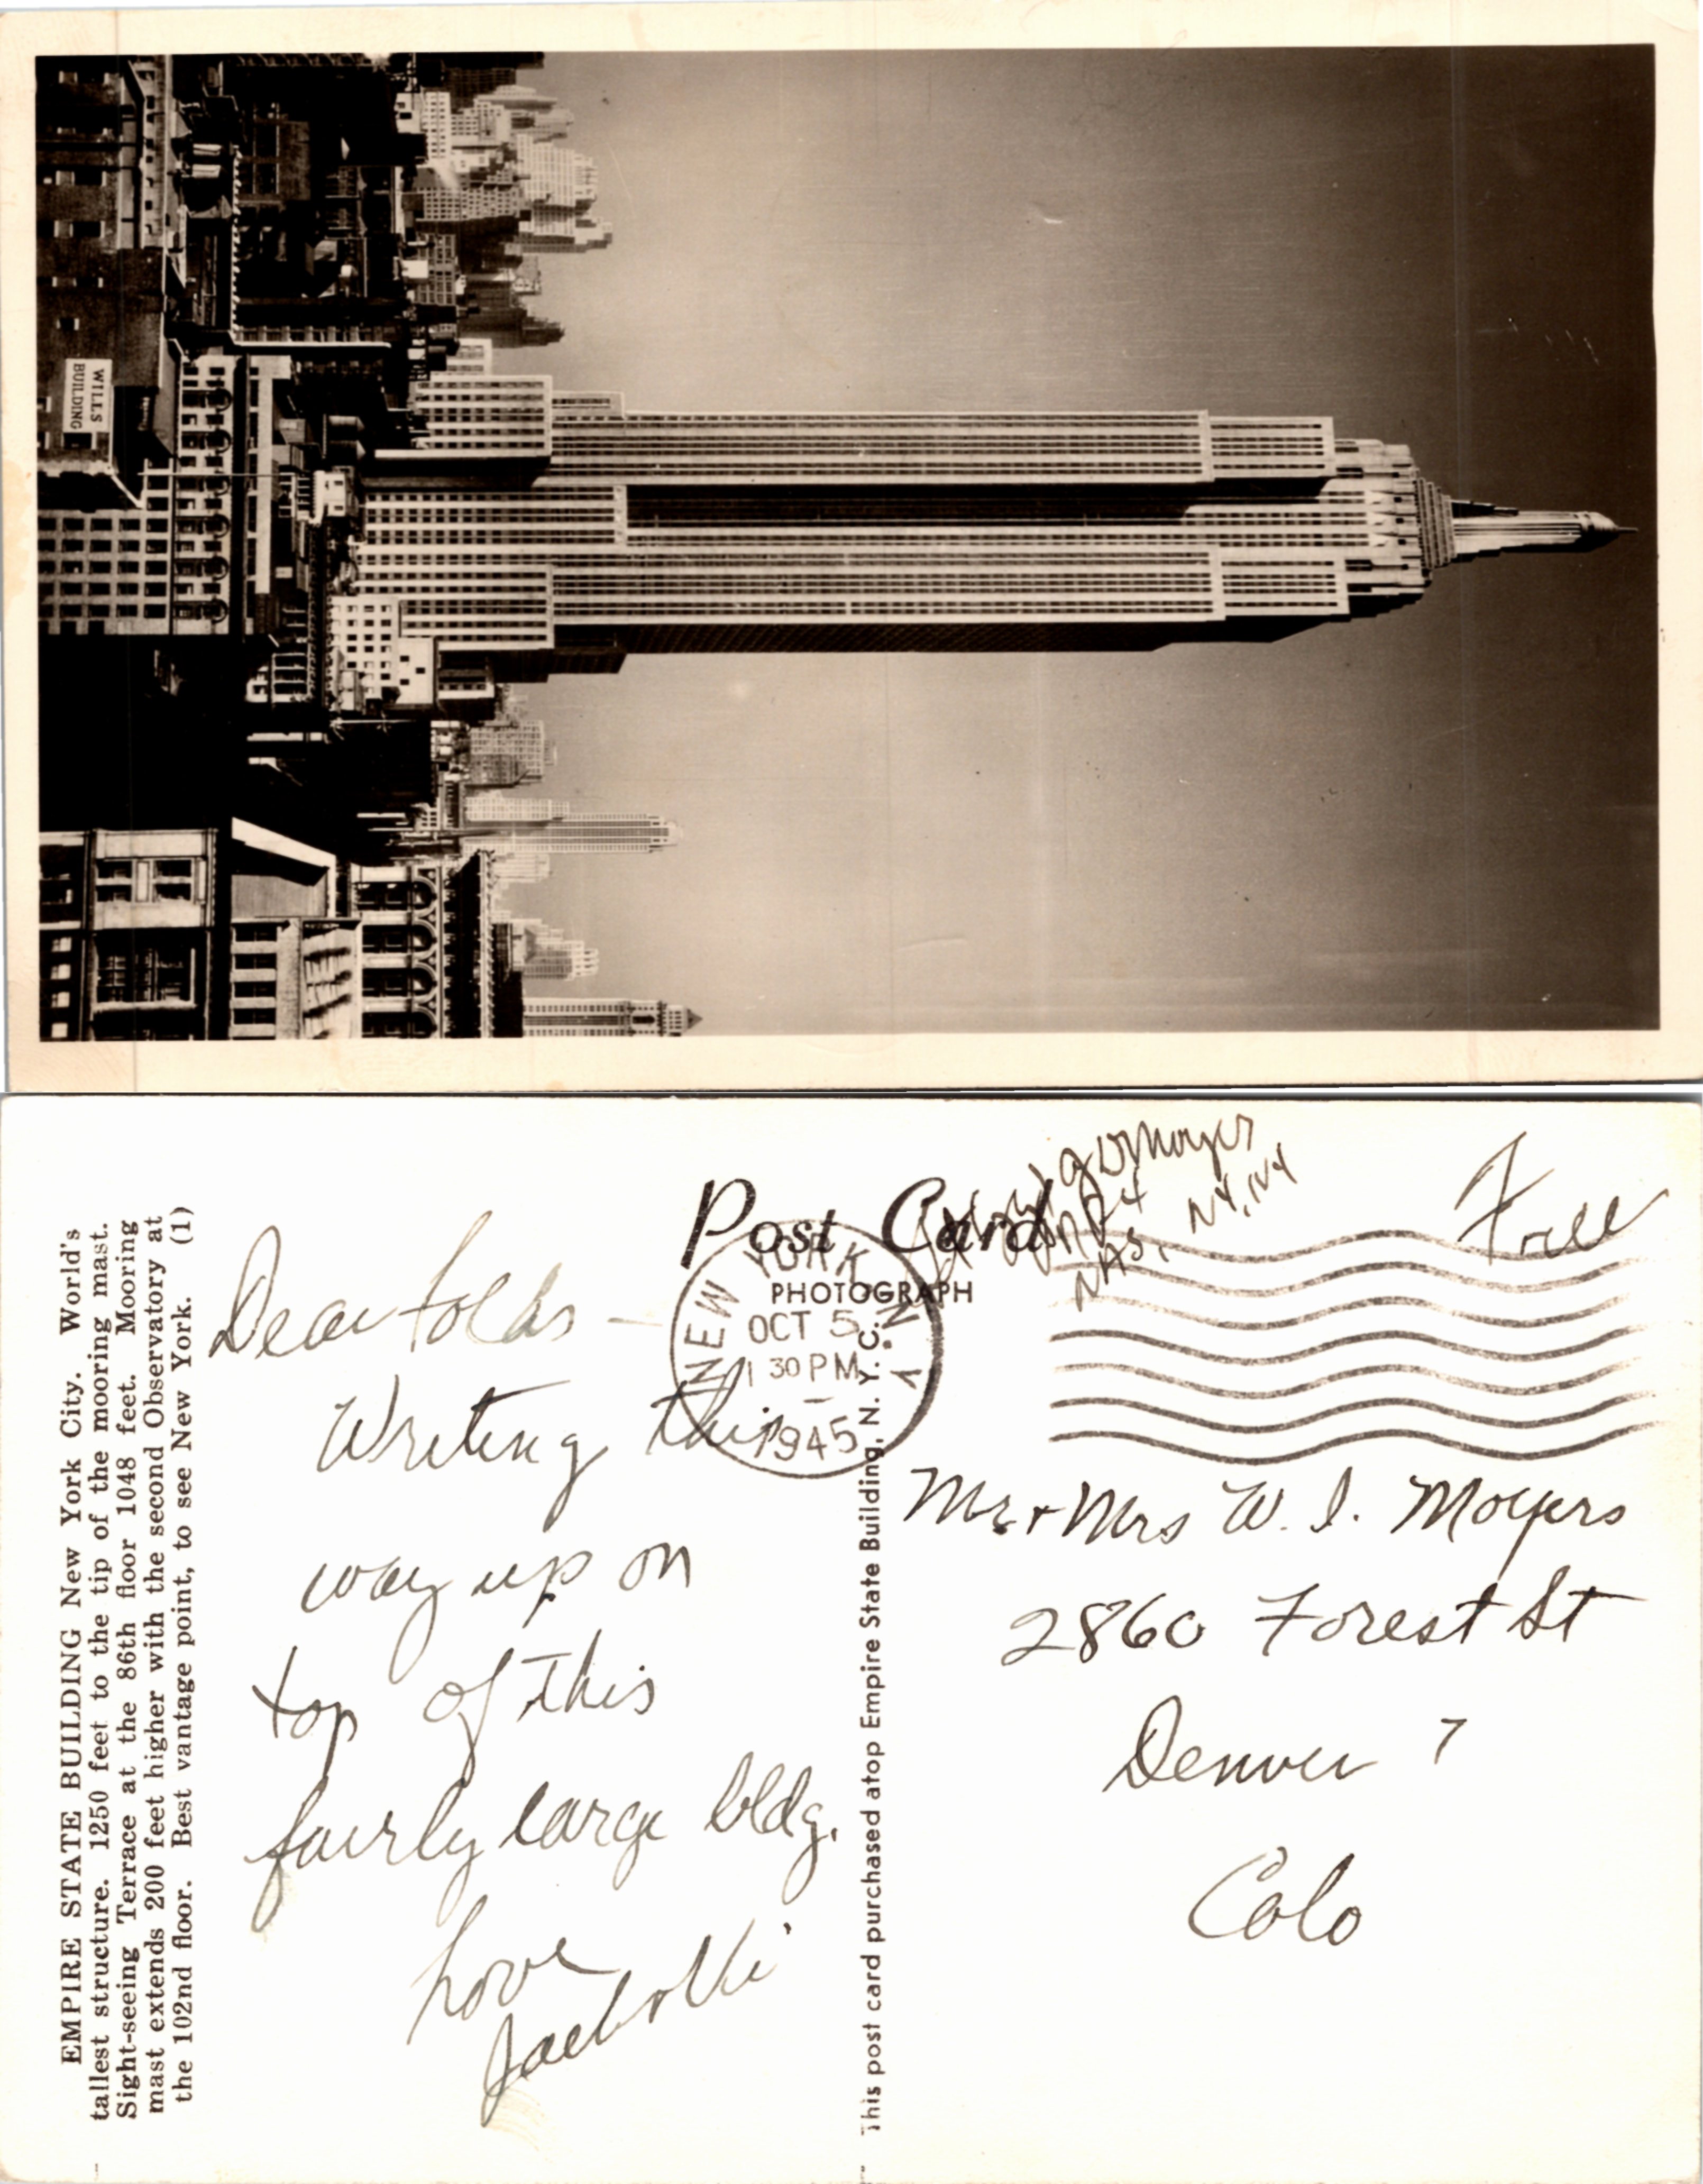 WILLS
BUILDING
EMPIRE STATE BUILDING New York City. World's
tallest structure. 1250 feet to the tip of the mooring mast.
Sight-seeing Terrace at the 86th floor 1048 feet. Mooring
mast extends 200 feet higher with the second Observatory at
the 102nd floor. Best vantage point, to see New York. (1)
Post Card
PHOTOGRAPH
NEW YORK, N.Y.
OCT 5
1 30 PM
1945
NAS, NY, NY
Free
Dear folks —
Writing this
way up on
top of this
fairly large bldg.
Love
Jack & Vi
This post card purchased atop Empire State Building, N. Y. C.
Mr + Mrs W. I. Moyers
2860 Forest St
Denver 7
Colo